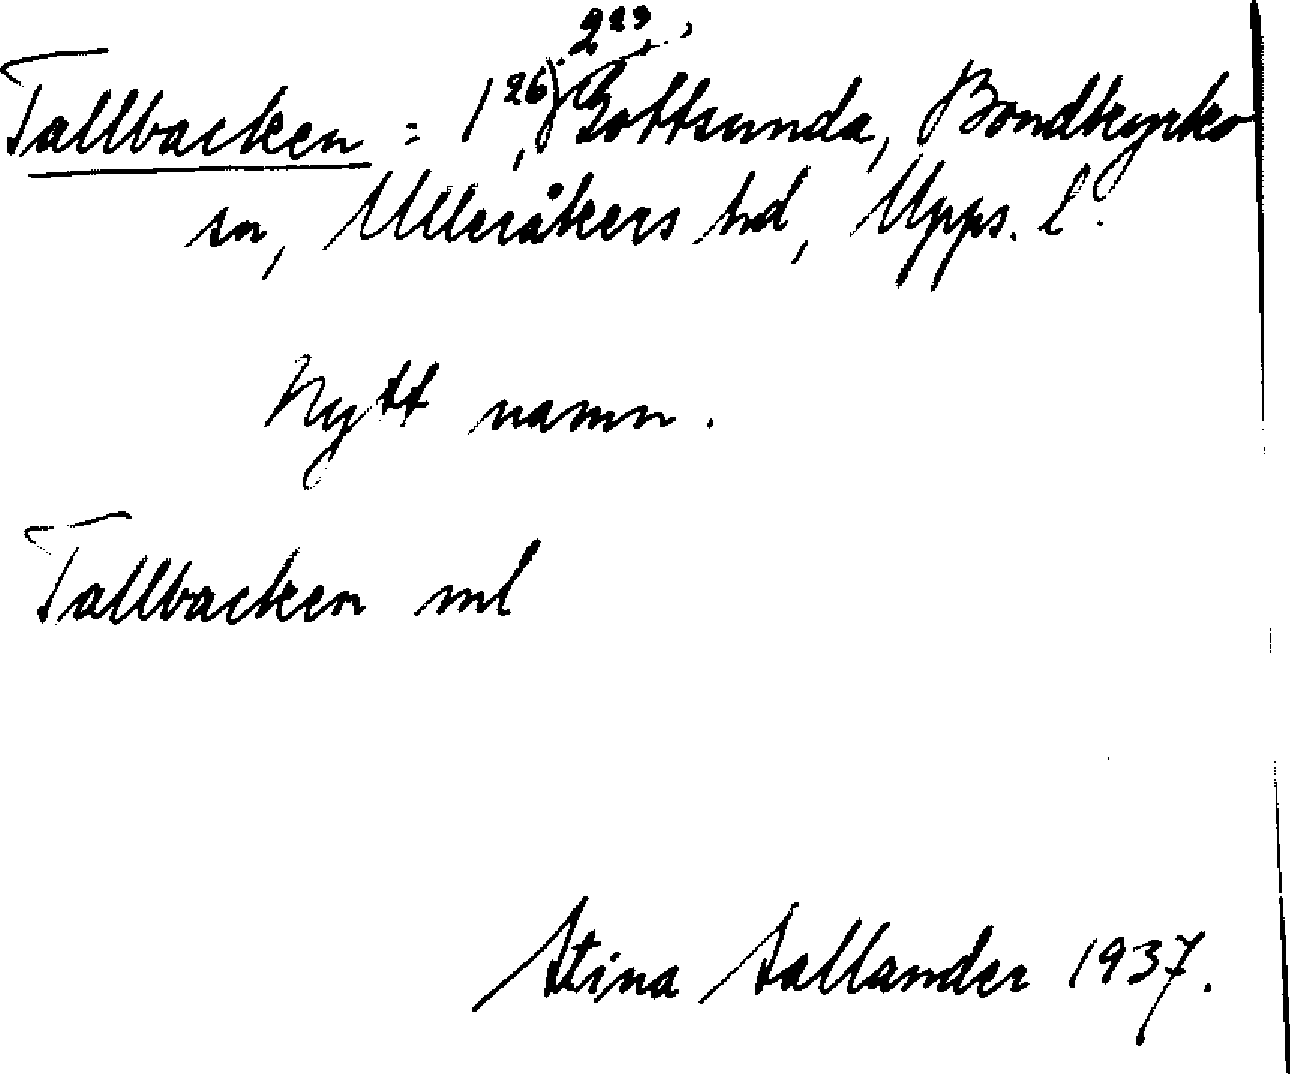 Tallbacken = 1²⁶, 2²³, Gottsunda, Bondkyrko
sn, Ulleråkers hd, Upps. l.
Nytt namn.
Tallbacken ml
Stina Sallander 1937.